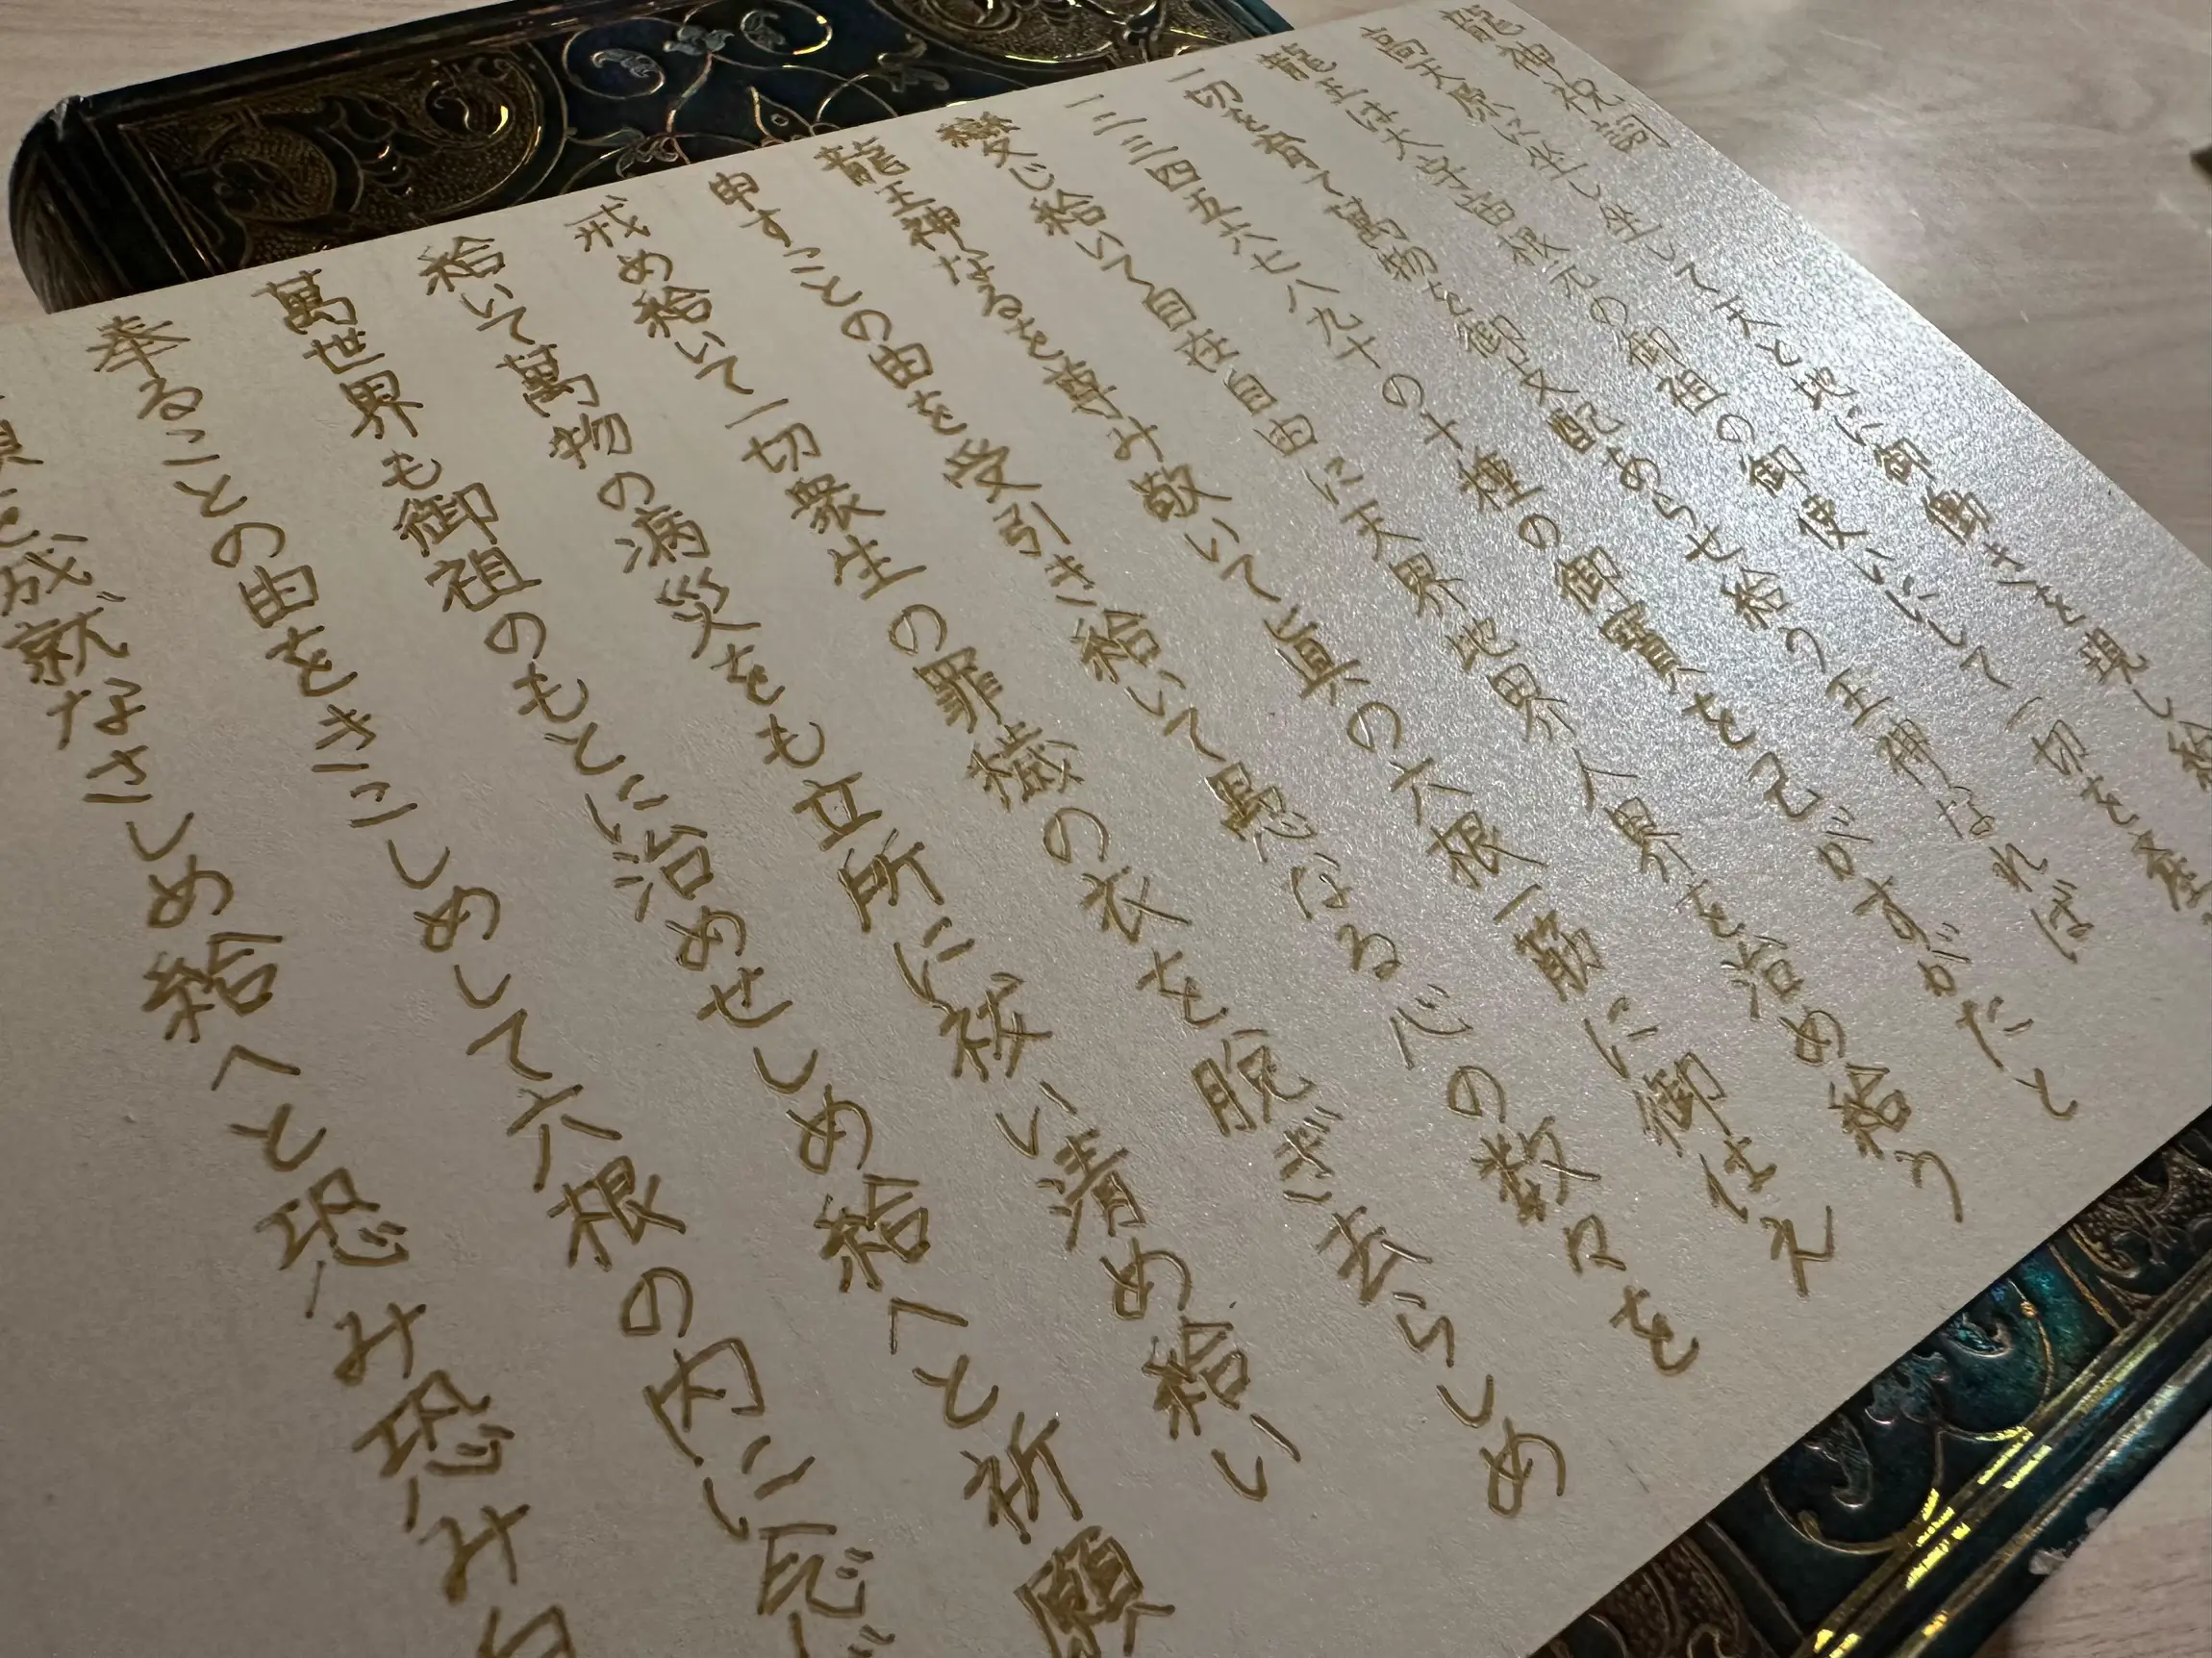 龍神祝詞
高天原に坐し坐して天と地に御働きを現し給
龍王は大宇宙根元の御祖の御使いにして一切を産
一切を育て萬物を御支配あらせ給う王神なれば
一二三四五六七八九十の十種の御寶を己がすがたと
變じ給いて自在自由に天界地界人界を治め給う
龍王神なるを尊み敬いて眞の六根一筋に御仕え
申すことの由を受引き給いて愚なる心の数々を
戒め給いて一切衆生の罪穢の衣を脱ぎ去らしめ
給いて萬物の病災をも立所に祓い清め給い
萬世界も御祖のもとに治めせしめ給へと祈願
奉ることの由をきこしめして六根の内に念じ
を成就なさしめ給へと恐み恐み白